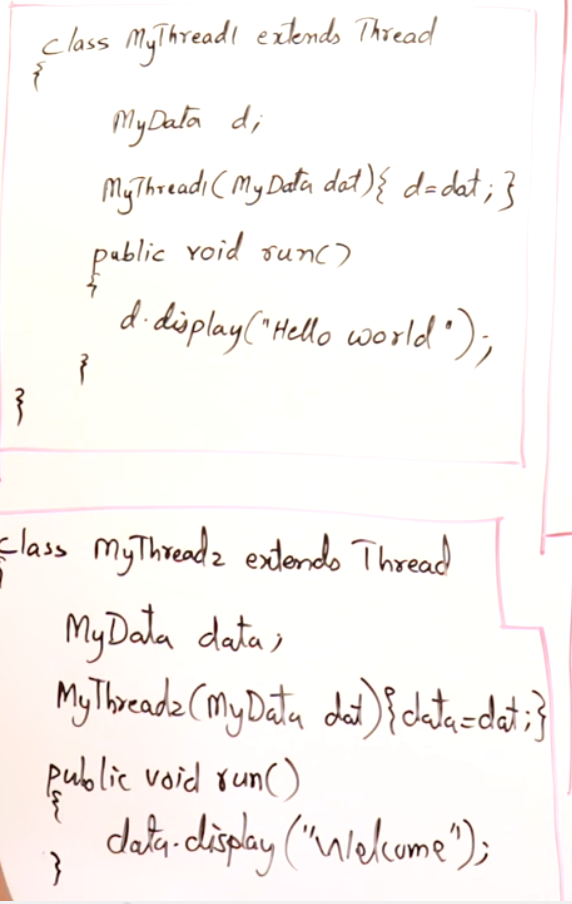 class MyThread1 extends Thread
{
MyData d;
MyThread1(MyData dat){ d=dat; }
public void run()
{
d.display("Hello world");
}
}
class MyThread2 extends Thread
{
MyData data;
MyThread2(MyData dat){data=dat;}
public void run()
{
data.display("Welcome");
}